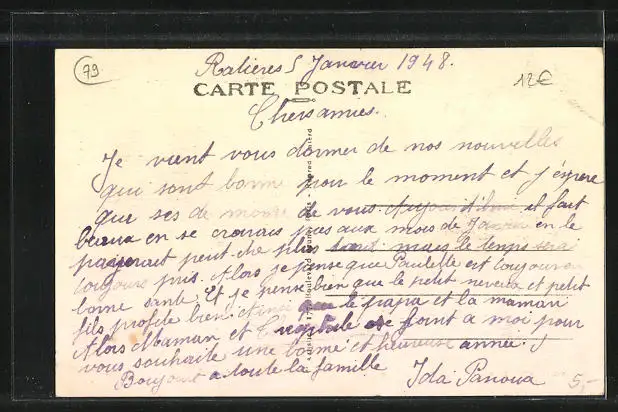 79
Ralières 5 Janvier 1948.
12€
CARTE POSTALE
Chers amies.
Je vient vous donner de nos nouvelles
qui sont bonne pour le moment et j'espere
que ses de meme de vous Aujourd'hui it fait
beaux en se croirais pas aux mois de Janvier en le
payerait peut être plus tard mais le temps sera
toujours pris. Alors je pense que Paulette est toujours
bonne santé, Et je pense bien que le petit neveux et petit
fils profite bien. Ainsi que le papa et la maman
Alors Maman et se joint a moi pour
vous souhaite une bonne et heureuse année.
Bonjour a toute la famille Ida Panoua
5,-